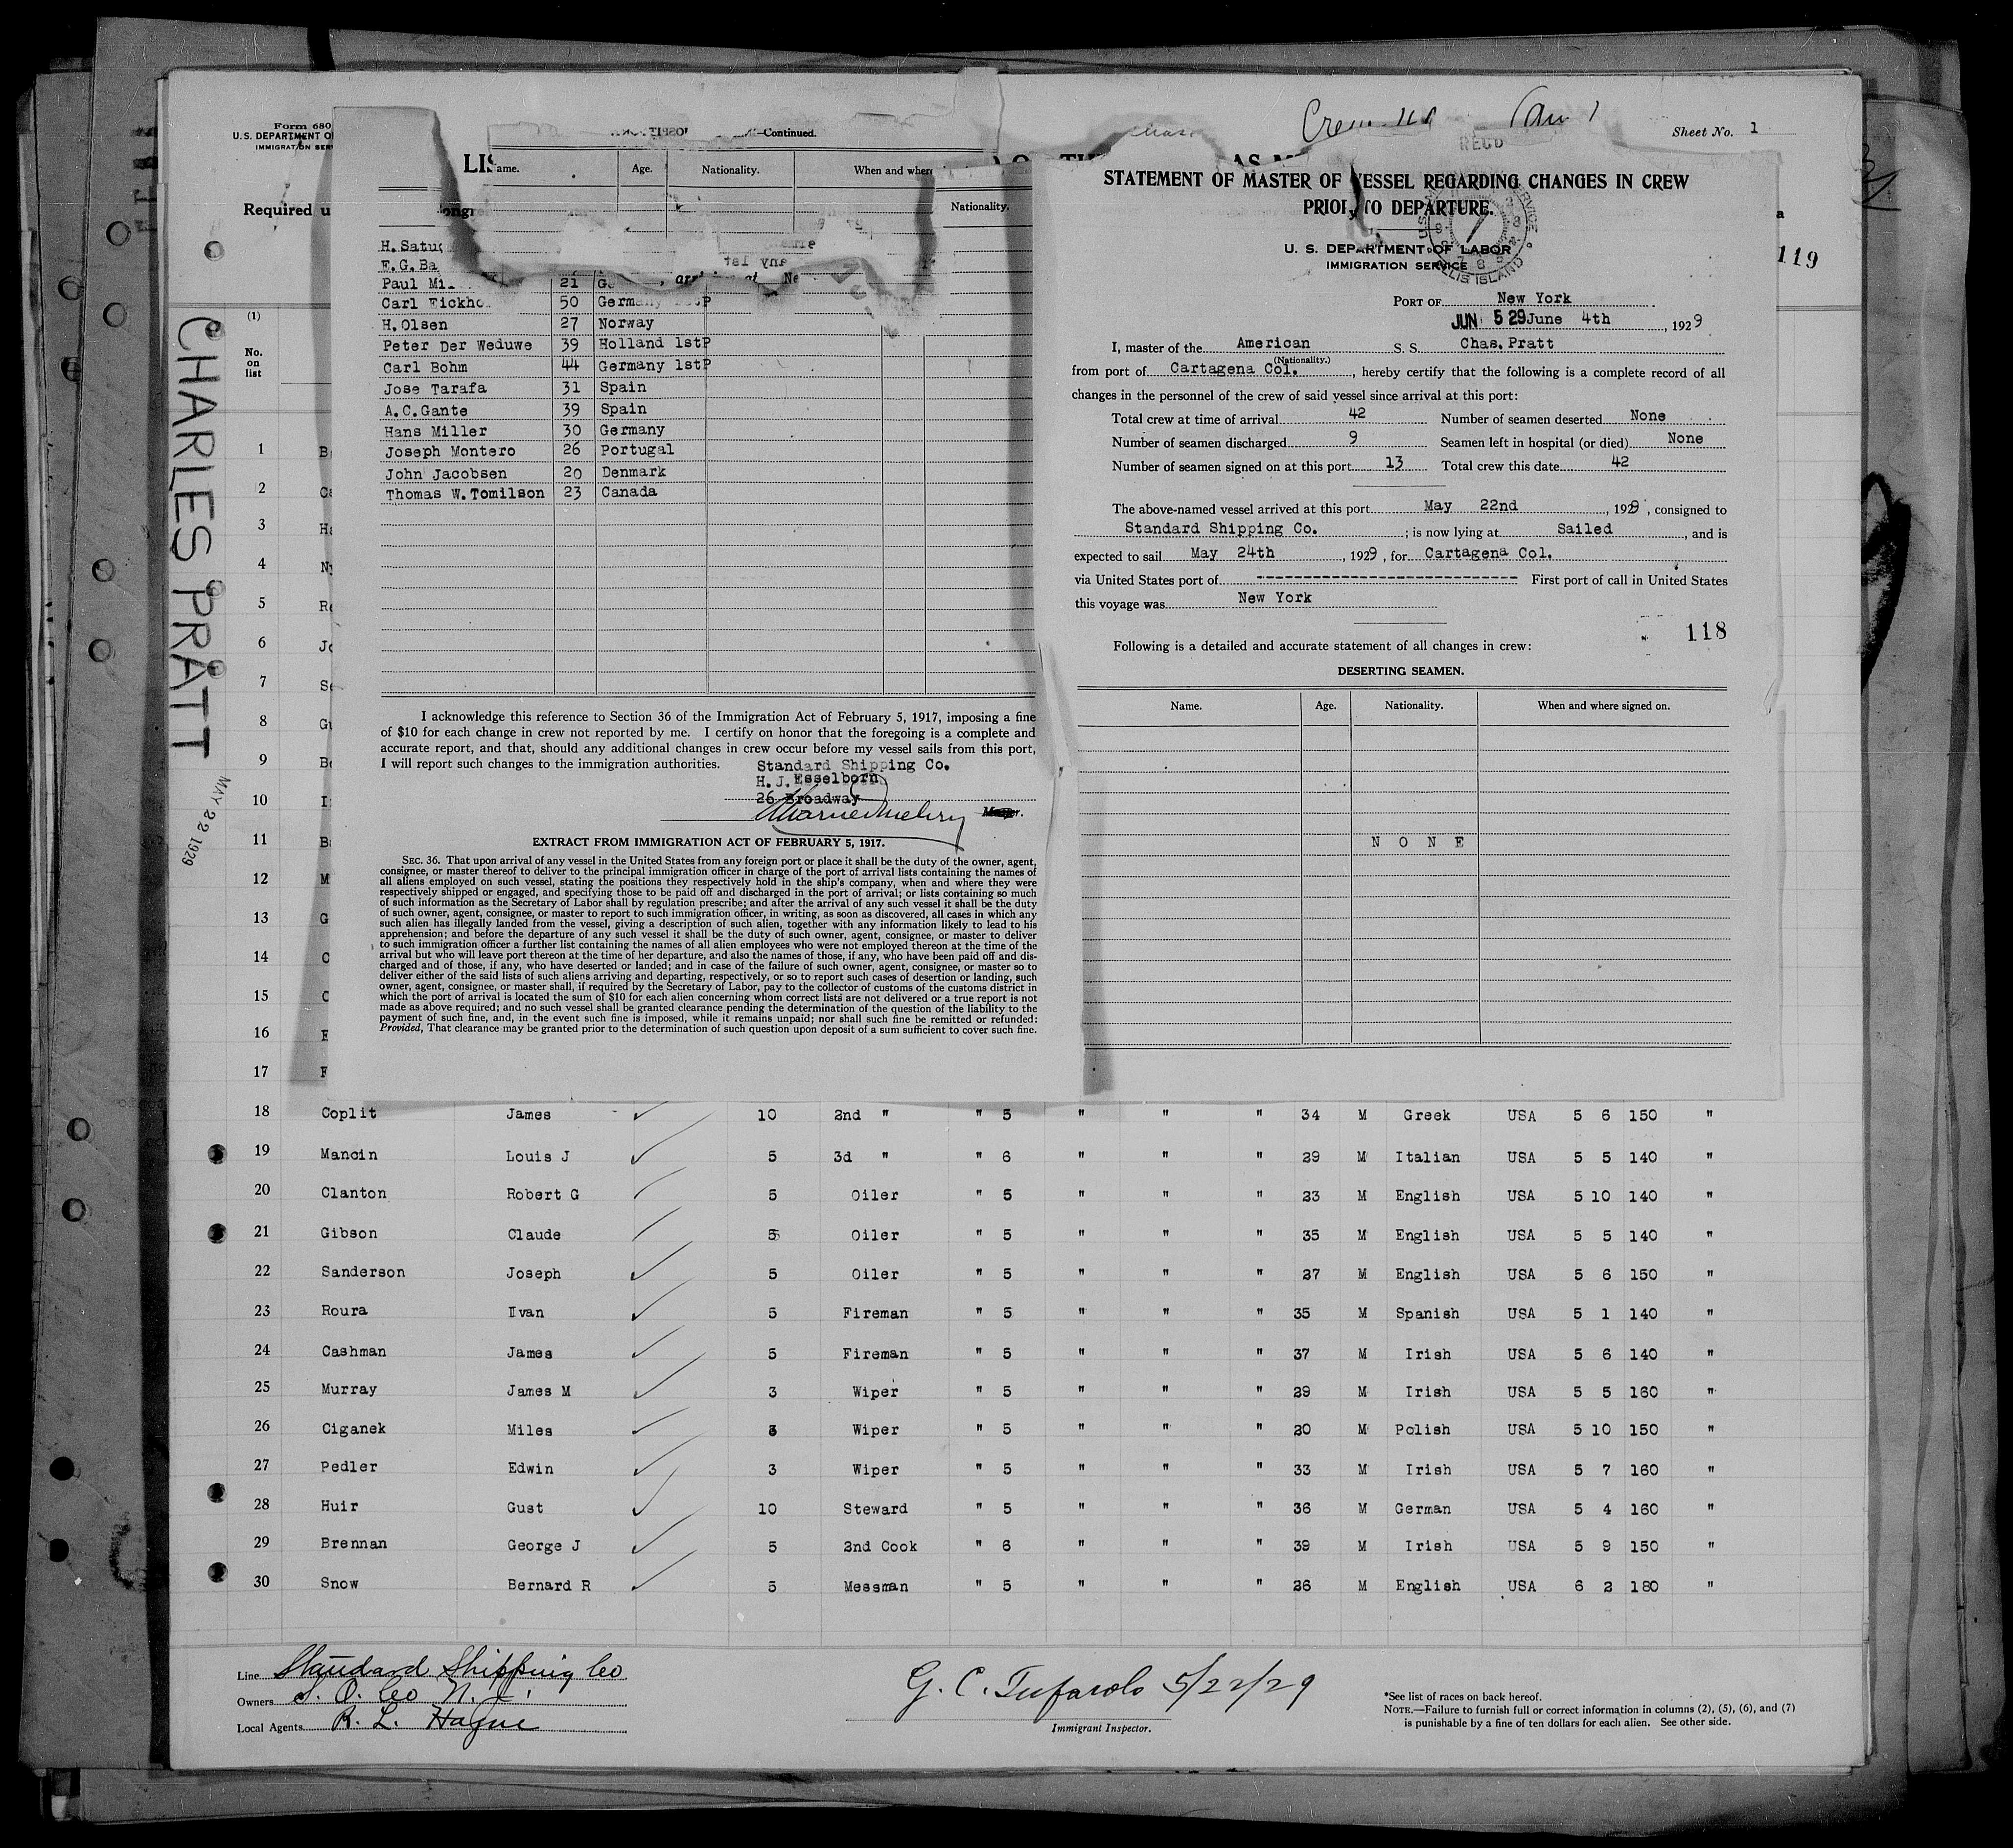 Form 680
U.S. DEPARTMENT O
IMMIGRATION SER
Required u
Sheet No. 1
RECD
119
CHARLES PRATT
MAY 22 1929
(1)
No.
on
list
—Continued.
LIS
ame.
Age.
Nationality.
When and where
Nationality.
H. Satu
E.G. Ba
Paul Mi 21
Carl Eickho 50 Germany 1stP
H. Olsen 27 Norway
Peter Der Weduwe 39 Holland 1stP
Carl Bohm 44 Germany 1stP
Jose Tarafa 31 Spain
A.C. Gante 39 Spain
Hans Miller 30 Germany
Joseph Montero 26 Portugal
John Jacobsen 20 Denmark
Thomas W. Tomilson 23 Canada
I acknowledge this reference to Section 36 of the Immigration Act of February 5, 1917, imposing a fine
of $10 for each change in crew not reported by me. I certify on honor that the foregoing is a complete and
accurate report, and that, should any additional changes in crew occur before my vessel sails from this port,
I will report such changes to the immigration authorities.
Standard Shipping Co.
H. J. Esselborn
26 Broadway
EXTRACT FROM IMMIGRATION ACT OF FEBRUARY 5, 1917.
SEC. 36. That upon arrival of any vessel in the United States from any foreign port or place it shall be the duty of the owner, agent,
consignee, or master thereof to deliver to the principal immigration officer in charge of the port of arrival lists containing the names of
all aliens employed on such vessel, stating the positions they respectively hold in the ship's company, when and where they were
respectively shipped or engaged, and specifying those to be paid off and discharged in the port of arrival; or lists containing so much
of such information as the Secretary of Labor shall by regulation prescribe; and after the arrival of any such vessel it shall be the duty
of such owner, agent, consignee, or master to report to such immigration officer, in writing, as soon as discovered, all cases in which any
such alien has illegally landed from the vessel, giving a description of such alien, together with any information likely to lead to his
apprehension; and before the departure of any such vessel it shall be the duty of such owner, agent, consignee, or master to deliver
to such immigration officer a further list containing the names of all alien employees who were not employed thereon at the time of the
arrival but who will leave port thereon at the time of her departure, and also the names of those, if any, who have been paid off and dis-
charged and of those, if any, who have deserted or landed; and in case of the failure of such owner, agent, consignee, or master so to
deliver either of the said lists of such aliens arriving and departing, respectively, or so to report such cases of desertion or landing, such
owner, agent, consignee, or master shall, if required by the Secretary of Labor, pay to the collector of customs of the customs district in
which the port of arrival is located the sum of $10 for each alien concerning whom correct lists are not delivered or a true report is not
made as above required; and no such vessel shall be granted clearance pending the determination of the question of the liability to the
payment of such fine, and, in the event such fine is imposed, while it remains unpaid; nor shall such fine be remitted or refunded:
Provided, That clearance may be granted prior to the determination of such question upon deposit of a sum sufficient to cover such fine.
STATEMENT OF MASTER OF VESSEL REGARDING CHANGES IN CREW
PRIOR TO DEPARTURE.
U. S. DEPARTMENT OF LABOR
IMMIGRATION SERVICE
ELLIS ISLAND
PORT OF New York
JUN 5 29 June 4th, 1929
I, master of the American S. S. Chas. Pratt
(Nationality.)
from port of Cartagena Col., hereby certify that the following is a complete record of all
changes in the personnel of the crew of said vessel since arrival at this port:
Total crew at time of arrival 42 Number of seamen deserted None
Number of seamen discharged 9 Seamen left in hospital (or died) None
Number of seamen signed on at this port 13 Total crew this date 42
The above-named vessel arrived at this port May 22nd, 1929, consigned to
Standard Shipping Co.; is now lying at Sailed, and is
expected to sail May 24th, 1929, for Cartagena Col.
via United States port of -------------------------- First port of call in United States
this voyage was New York
118
Following is a detailed and accurate statement of all changes in crew:
DESERTING SEAMEN.
Name. Age. Nationality. When and where signed on.
N O N E
1
2
3
4
5
6
7
8
9
10
11
12
13
14
15
16
17
18 Coplit James 10 2nd " " 5 " " " 34 M Greek USA 5 6 150 "
19 Mancin Louis J 5 3d " " 6 " " " 29 M Italian USA 5 5 140 "
20 Clanton Robert G 5 Oiler " 5 " " " 23 M English USA 5 10 140 "
21 Gibson Claude 5 Oiler " 5 " " " 35 M English USA 5 5 140 "
22 Sanderson Joseph 5 Oiler " 5 " " " 27 M English USA 5 6 150 "
23 Roura Ivan 5 Fireman " 5 " " " 35 M Spanish USA 5 1 140 "
24 Cashman James 5 Fireman " 5 " " " 37 M Irish USA 5 6 140 "
25 Murray James M 3 Wiper " 5 " " " 29 M Irish USA 5 5 160 "
26 Ciganek Miles 3 Wiper " 5 " " " 20 M Polish USA 5 10 150 "
27 Pedler Edwin 3 Wiper " 5 " " " 33 M Irish USA 5 7 160 "
28 Huir Gust 10 Steward " 5 " " " 36 M German USA 5 4 160 "
29 Brennan George J 5 2nd Cook " 6 " " " 39 M Irish USA 5 9 150 "
30 Snow Bernard R 5 Messman " 5 " " " 26 M English USA 6 2 180 "
Line Standard Shipping Co
Owners S. O. Co N. J.
Local Agents R. L. Hague
G. C. Tufarolo 5/22/29
Immigrant Inspector.
*See list of races on back hereof.
NOTE.—Failure to furnish full or correct information in columns (2), (5), (6), and (7)
is punishable by a fine of ten dollars for each alien. See other side.